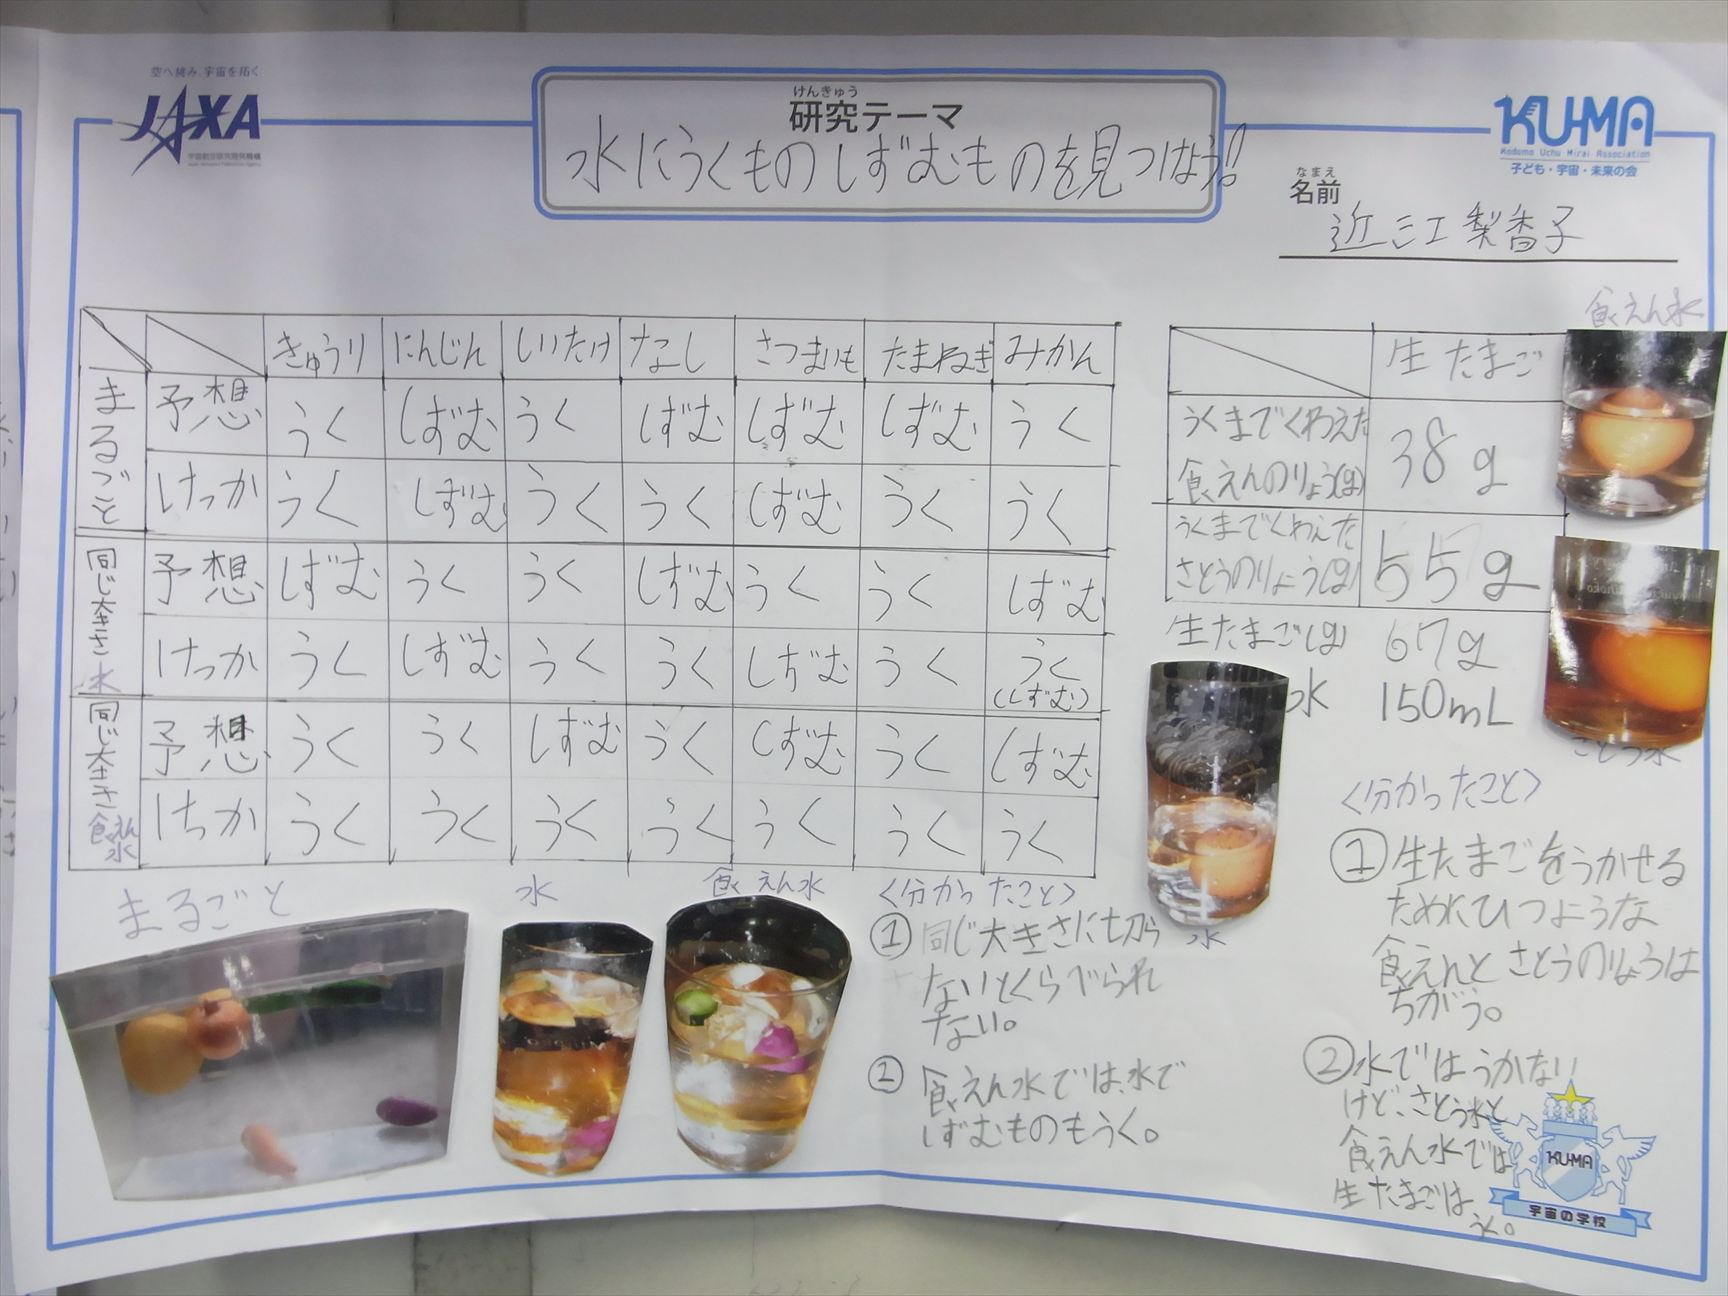 空へ挑み、宇宙を拓く
JAXA
宇宙航空研究開発機構
Japan Aerospace Exploration Agency
けんきゅう
研究テーマ
水にうくものしずむものを見つけよう!
KU-MA
Kodomo Uchu Mirai Association
子ども・宇宙・未来の会
なまえ
名前
近江梨香子
きゅうり にんじん しいたけ なし さつまいも たまねぎ みかん
まるごと
予想 うく しずむ うく しずむ しずむ しずむ うく
けっか うく しずむ うく うく しずむ うく うく
同じ大きさ 水
予想 しずむ うく うく しずむ うく うく しずむ
けっか うく しずむ うく うく しずむ うく うく
(しずむ)
同じ大きさ 食えん水
予想 うく うく しずむ うく しずむ うく しずむ
けっか うく うく うく うく うく うく うく
食えん水
生たまご
うくまでくわえた
食えんのりょう(g) 38g
うくまでくわえた
さとうのりょう(g) 55g
生たまご(g) 67g
水 150mL
さとう水
水
まるごと
水
食えん水
<分かったこと>
① 同じ大きさに切ら
ないとくらべられ
ない。
② 食えん水では、水で
しずむものもうく。
<分かったこと>
①生たまごをうかせる
ためにひつような
食えんとさとうのりょうは
ちがう。
②水ではうかない
けど、さとう水と
食えん水では
生たまごは
うく。
KU-MA
宇宙の学校